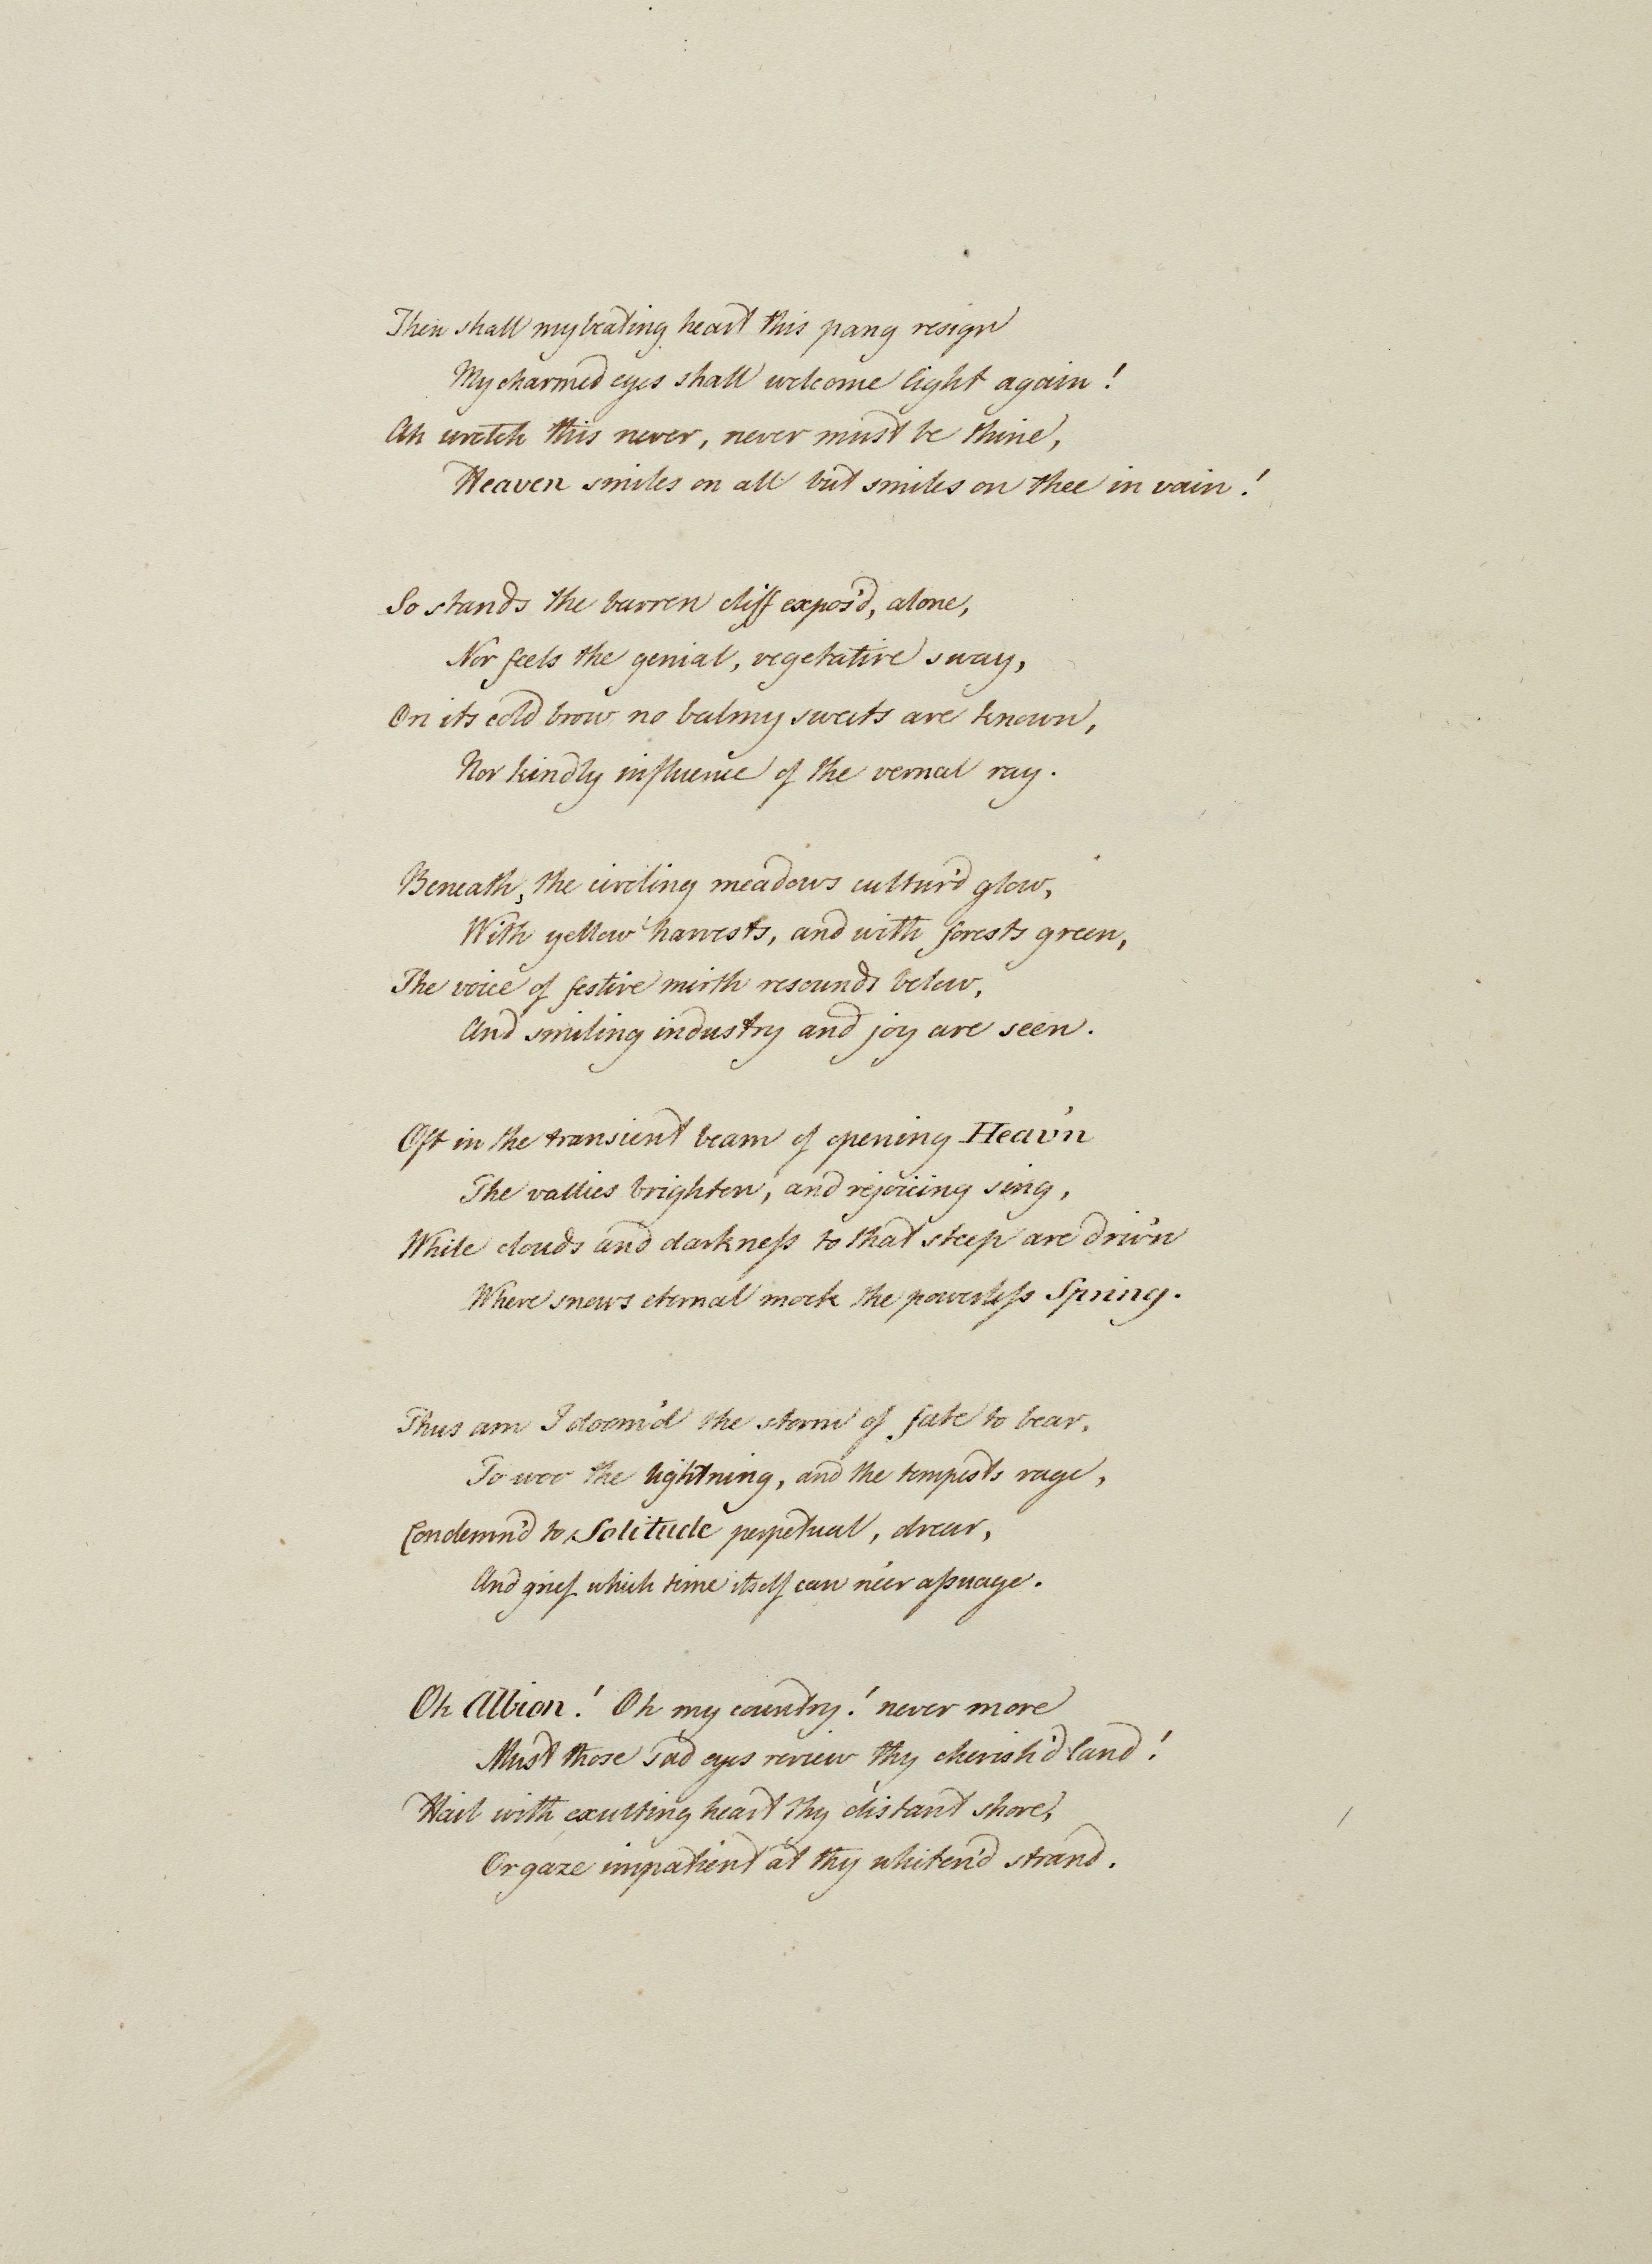 Then shall my beating heart this pang resign
My charmed eyes shall welcome light again!
Ah wretch this never, never must be thine,
Heaven smiles on all but smiles on thee in vain!
So stands the barren cliff expos'd, alone,
Nor feels the genial, vegetative sway,
On its cold brow no balmy sweets are known,
Nor kindly influence of the vernal ray.
Beneath, the circling meadows cultur'd glow,
With yellow harvests, and with forests green,
The voice of festive mirth resounds below,
And smiling industry and joy are seen.
Oft in the transient beam of opening Heav'n
The vallies brighten, and rejoicing sing,
While clouds and darkneſs to that steep are driv'n
Where snows eternal mock the powerleſs Spring.
Thus am I doom'd the storm of fate to bear,
To woo the lightning, and the tempests rage,
Condemn'd to Solitude perpetual, drear,
And grief which time itself can ne'er aſsuage.
Oh Albion! Oh my country! never more
Must those sad eyes review thy cherish'd land!
Hail with exulting heart thy distant shore,
Or gaze impatient at thy whiten'd strand.